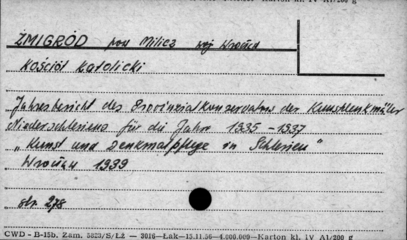 ŻMIGRÓD pow Milicz woj Wrocław
Kościół Katolicki
Jahresbericht des Provinzialkonservators der Kunstdenkmäler
Niederschlesiens für die Jahre 1935-1937
"Kunst und Denkmalpflege in Schlesien"
Wrocław 1939
str. 278
CWD - B-15b. Zam. 5523/S/Lż — 3016—Łak—15.11.56—4.000.000—Karton kl. IV A1/200 g